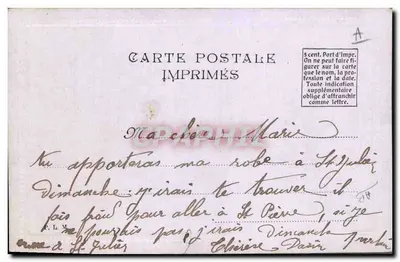 A
CARTE POSTALE
IMPRIMÉS
5 cent. Port d'Impr.
On ne peut faire fi-
gurer sur la carte
que le nom, la pro-
fession et la date.
Toute indication
supplémentaire
oblige d'affranchir
comme lettre.
Ma chère Marie
tu apporteras ma robe à St Julien
Dimanche: j'irais te trouver il
fais froid pour aller à St Pierre, si je
ne pourrais pas j'irais Dimanche
à St Julien Thérèse